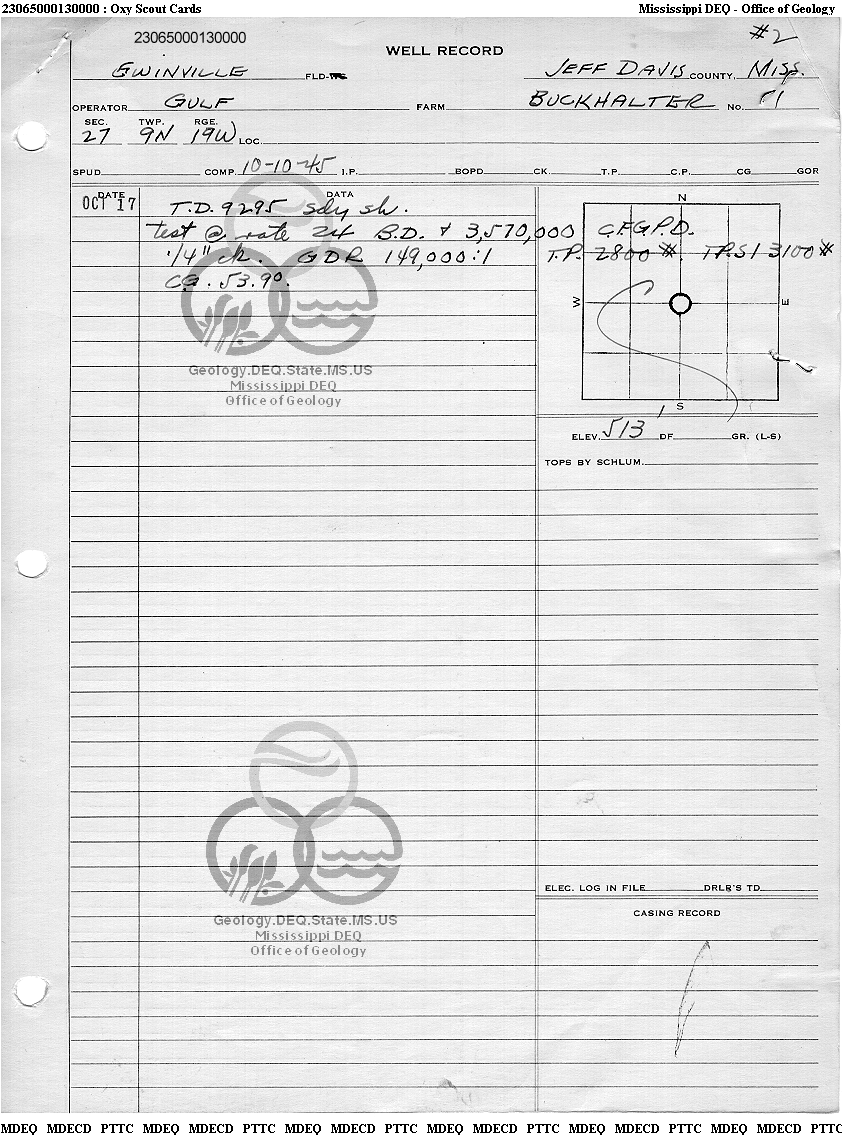 23065000130000 : Oxy Scout Cards Mississippi DEQ - Office of Geology
23065000130000 #2
WELL RECORD
GWINVILLE FLD- JEFF DAVIS COUNTY, MISS.
OPERATOR GULF FARM BUCKHALTER NO. 1
SEC. TWP. RGE.
27 9N 19W LOC.
SPUD COMP. 10-10-45 I.P. BOPD CK. T.P. C.P. CG GOR
DATE DATA
OCT 17 T.D. 9295 sdy sh.
test @ rate 24 B.D. & 3,570,000 C.F.G.P.D.
1/4" ck. GOR 149,000:1 T.P. 2800 #. T.P. SI 3100 #
C.G. 53.9°.
N
W E
S
Geology.DEQ.State.MS.US
Mississippi DEQ
Office of Geology
ELEV. 513 DF GR. (L-S)
TOPS BY SCHLUM.
ELEC. LOG IN FILE DRLR'S TD
CASING RECORD
Geology.DEQ.State.MS.US
Mississippi DEQ
Office of Geology
MDEQ MDECD PTTC MDEQ MDECD PTTC MDEQ MDECD PTTC MDEQ MDECD PTTC MDEQ MDECD PTTC MDEQ MDECD PTTC